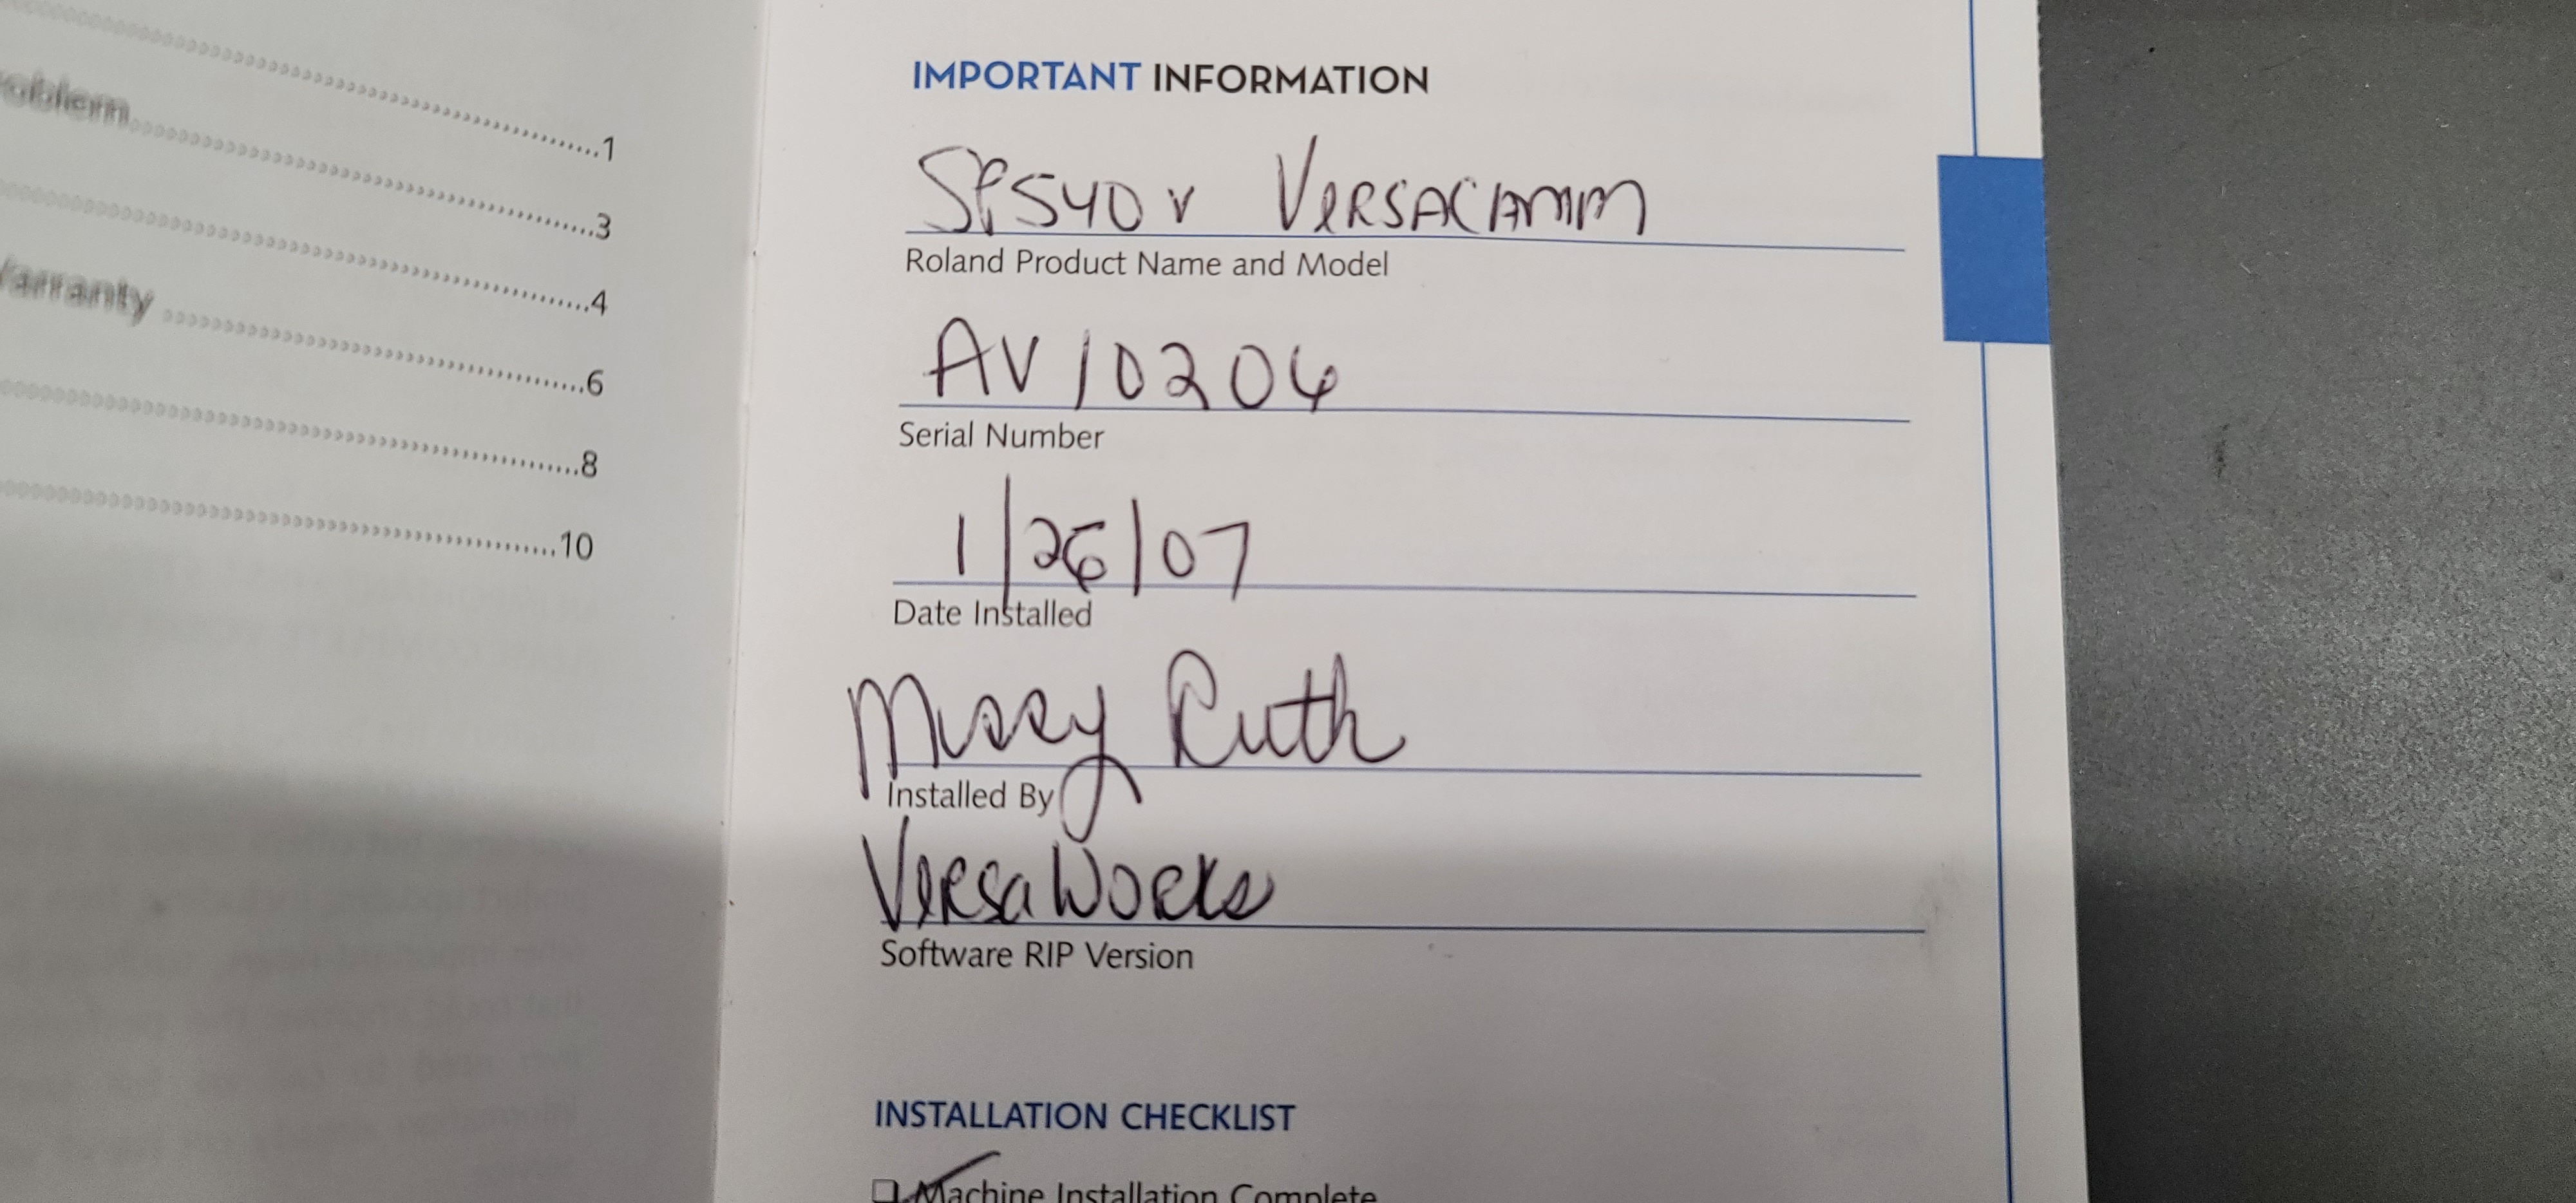 .....1
oblem.....3
.....4
Warranty.....6
.....8
.....10
IMPORTANT INFORMATION
SP540v VERSACAMM
Roland Product Name and Model
AV10206
Serial Number
1/26/07
Date Installed
Missy Ruth
Installed By
VersaWorks
Software RIP Version
INSTALLATION CHECKLIST
Machine Installation Complete